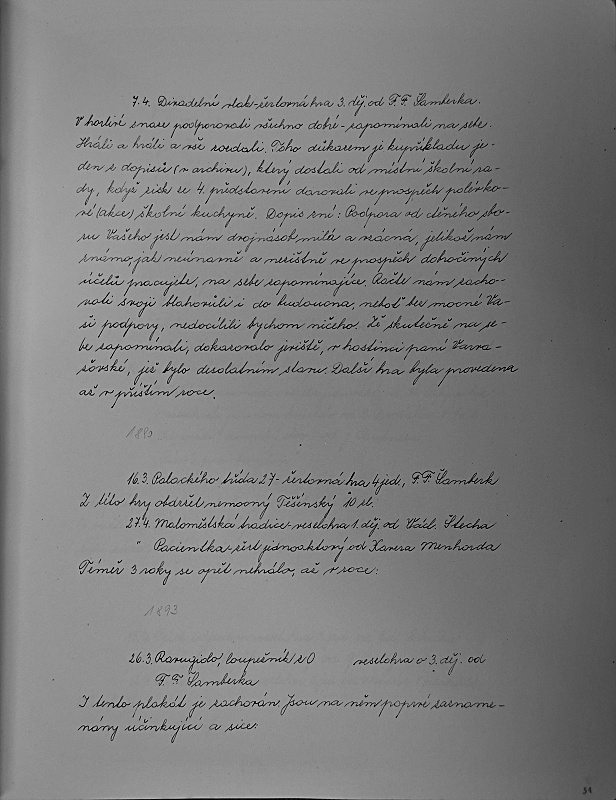 7.4. Divadelní vlak-žertovná hra 3. děj. od F.F. Šamberka.
V horlivé snaze podporovali všechno dobré-zapomínali na sebe.
Hráli a hráli a vše rozdali. Toho důkazem je kupříkladu je-
den z dopisů (v archivu), který dostali od místní školní ra-
dy, když zisk ze 4. představení darovali ve prospěch polévko-
vé (akce) školní kuchyně. Dopis zní: Podpora od ctěného sbo-
ru Vašeho jest nám dvojnásob milá a vzácná, jelikož nám
známo, jak neúnavně a nezištně ve prospěch dobročinných
účelů pracujete, na sebe zapomínajíce. Račte nám zacho-
vati svoji blahovůli i do budoucna, neboť bez mocné Va-
ší podpory, nedocílili bychom ničeho. Že skutečně na se-
be zapomínali, dokazovalo jeviště, v hostinci paní Varva-
žovské, jež bylo desolatním stavu. Další hra byla provedena
až v příštím roce.
1890
16.3. Palackého třída 27- žertovná hra 4 jed, F.F. Šamberk
Z této hry obdržel nemocný Těšínský 10 zl.
27.4. Maloměstská tradice-veselohra 1. děj. od Václ. Štecha
" Pacientka-žert jednoaktový od Xavera Menhorda
Téměř 3 roky se opět nehrálo, až v roce:
1893
26.3. Ravugido, loupežník z O veselohra o 3. děj. od
F.F. Šamberka
I tento plakát je zachován. Jsou na něm poprvé zazname-
nány účinkující a sice:
51